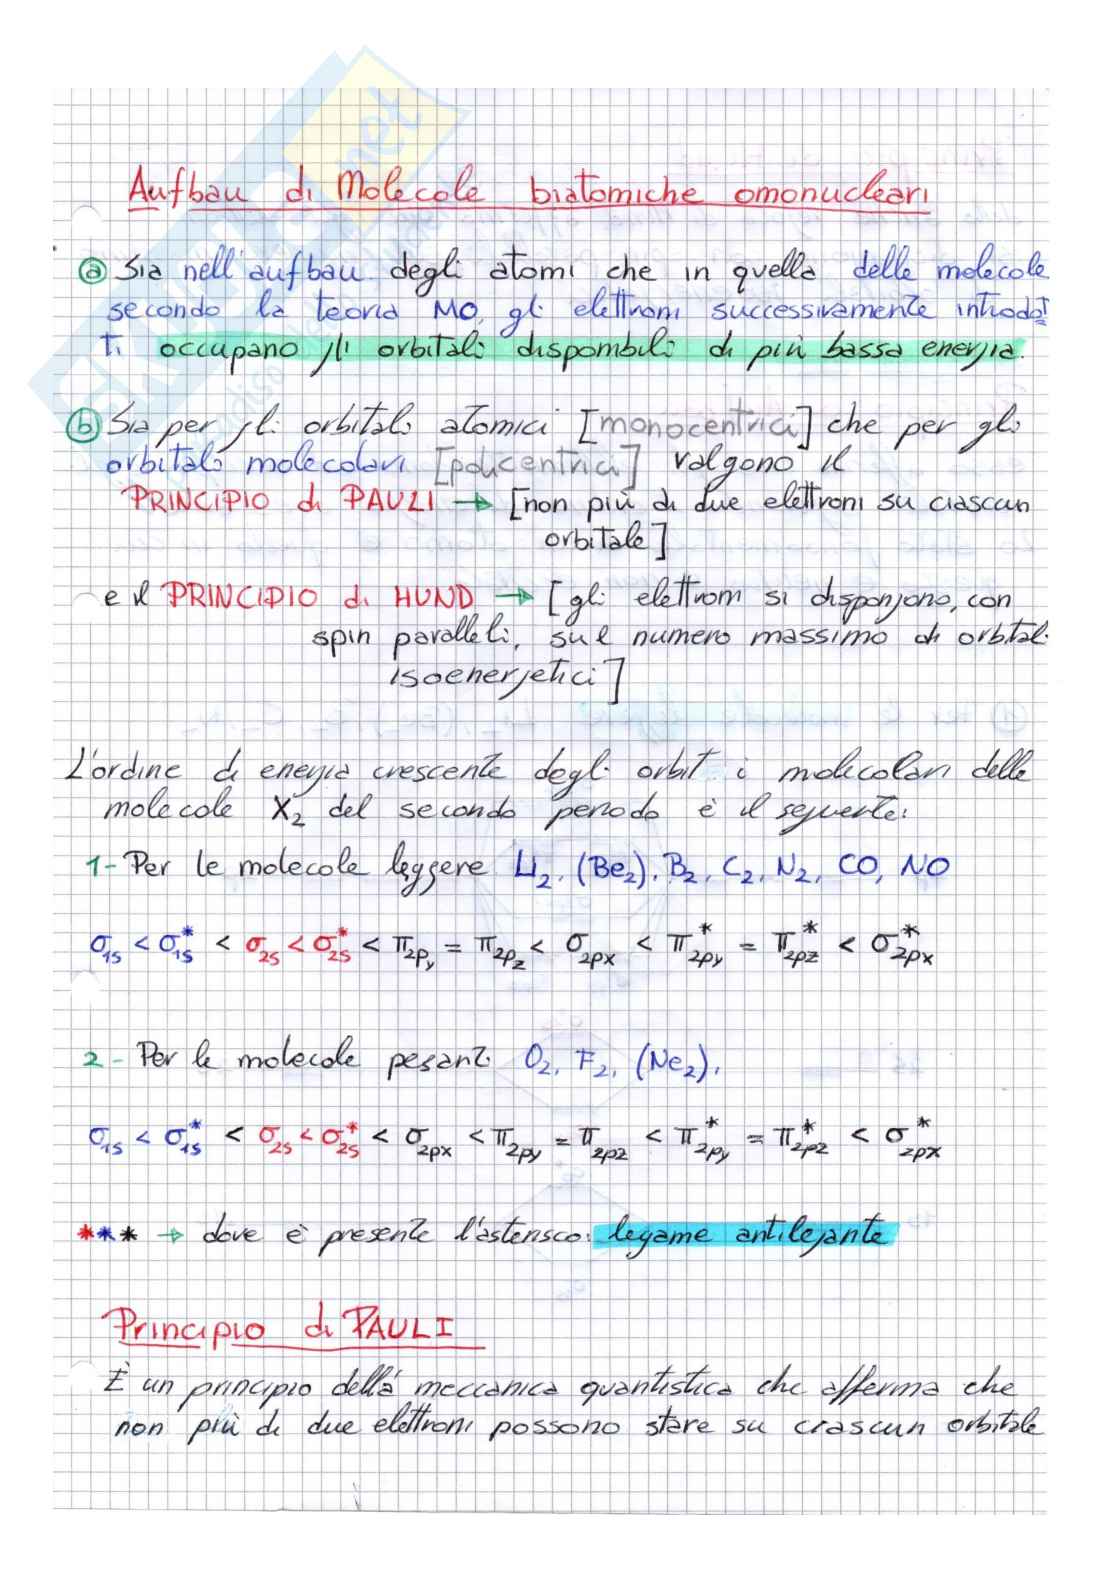 Aufbau di Molecole biatomiche omonucleari
ⓐ Sia nell'aufbau degli atomi che in quella delle molecole
secondo la teoria MO, gli elettroni successivamente introdot
ti occupano gli orbitali disponibili di più bassa energia.
ⓑ Sia per gli orbitali atomici [monocentrici] che per gli
orbitali molecolari [policentrici] valgono il
PRINCIPIO di PAULI → [non più di due elettroni su ciascun
orbitale]
e il PRINCIPIO di HUND → [gli elettroni si dispongono, con
spin paralleli, sul numero massimo di orbitali
isoenergetici]
L'ordine di energia crescente degli orbit i molecolari delle
molecole X₂ del secondo periodo è il seguente:
1- Per le molecole leggere Li₂, (Be₂), B₂, C₂, N₂, CO, NO
σ1s < σ*1s < σ2s < σ*2s < π2py = π2pz < σ2px < π*2py = π*2pz < σ*2px
2- Per le molecole pesanti O₂, F₂, (Ne₂),
σ1s < σ*1s < σ2s < σ*2s < σ2px < π2py = π2pz < π*2py = π*2pz < σ*2px
*** → dove è presente l'asterisco: legame antilegante
Principio di PAULI
È un principio della meccanica quantistica che afferma che
non più di due elettroni possono stare su ciascun orbitale